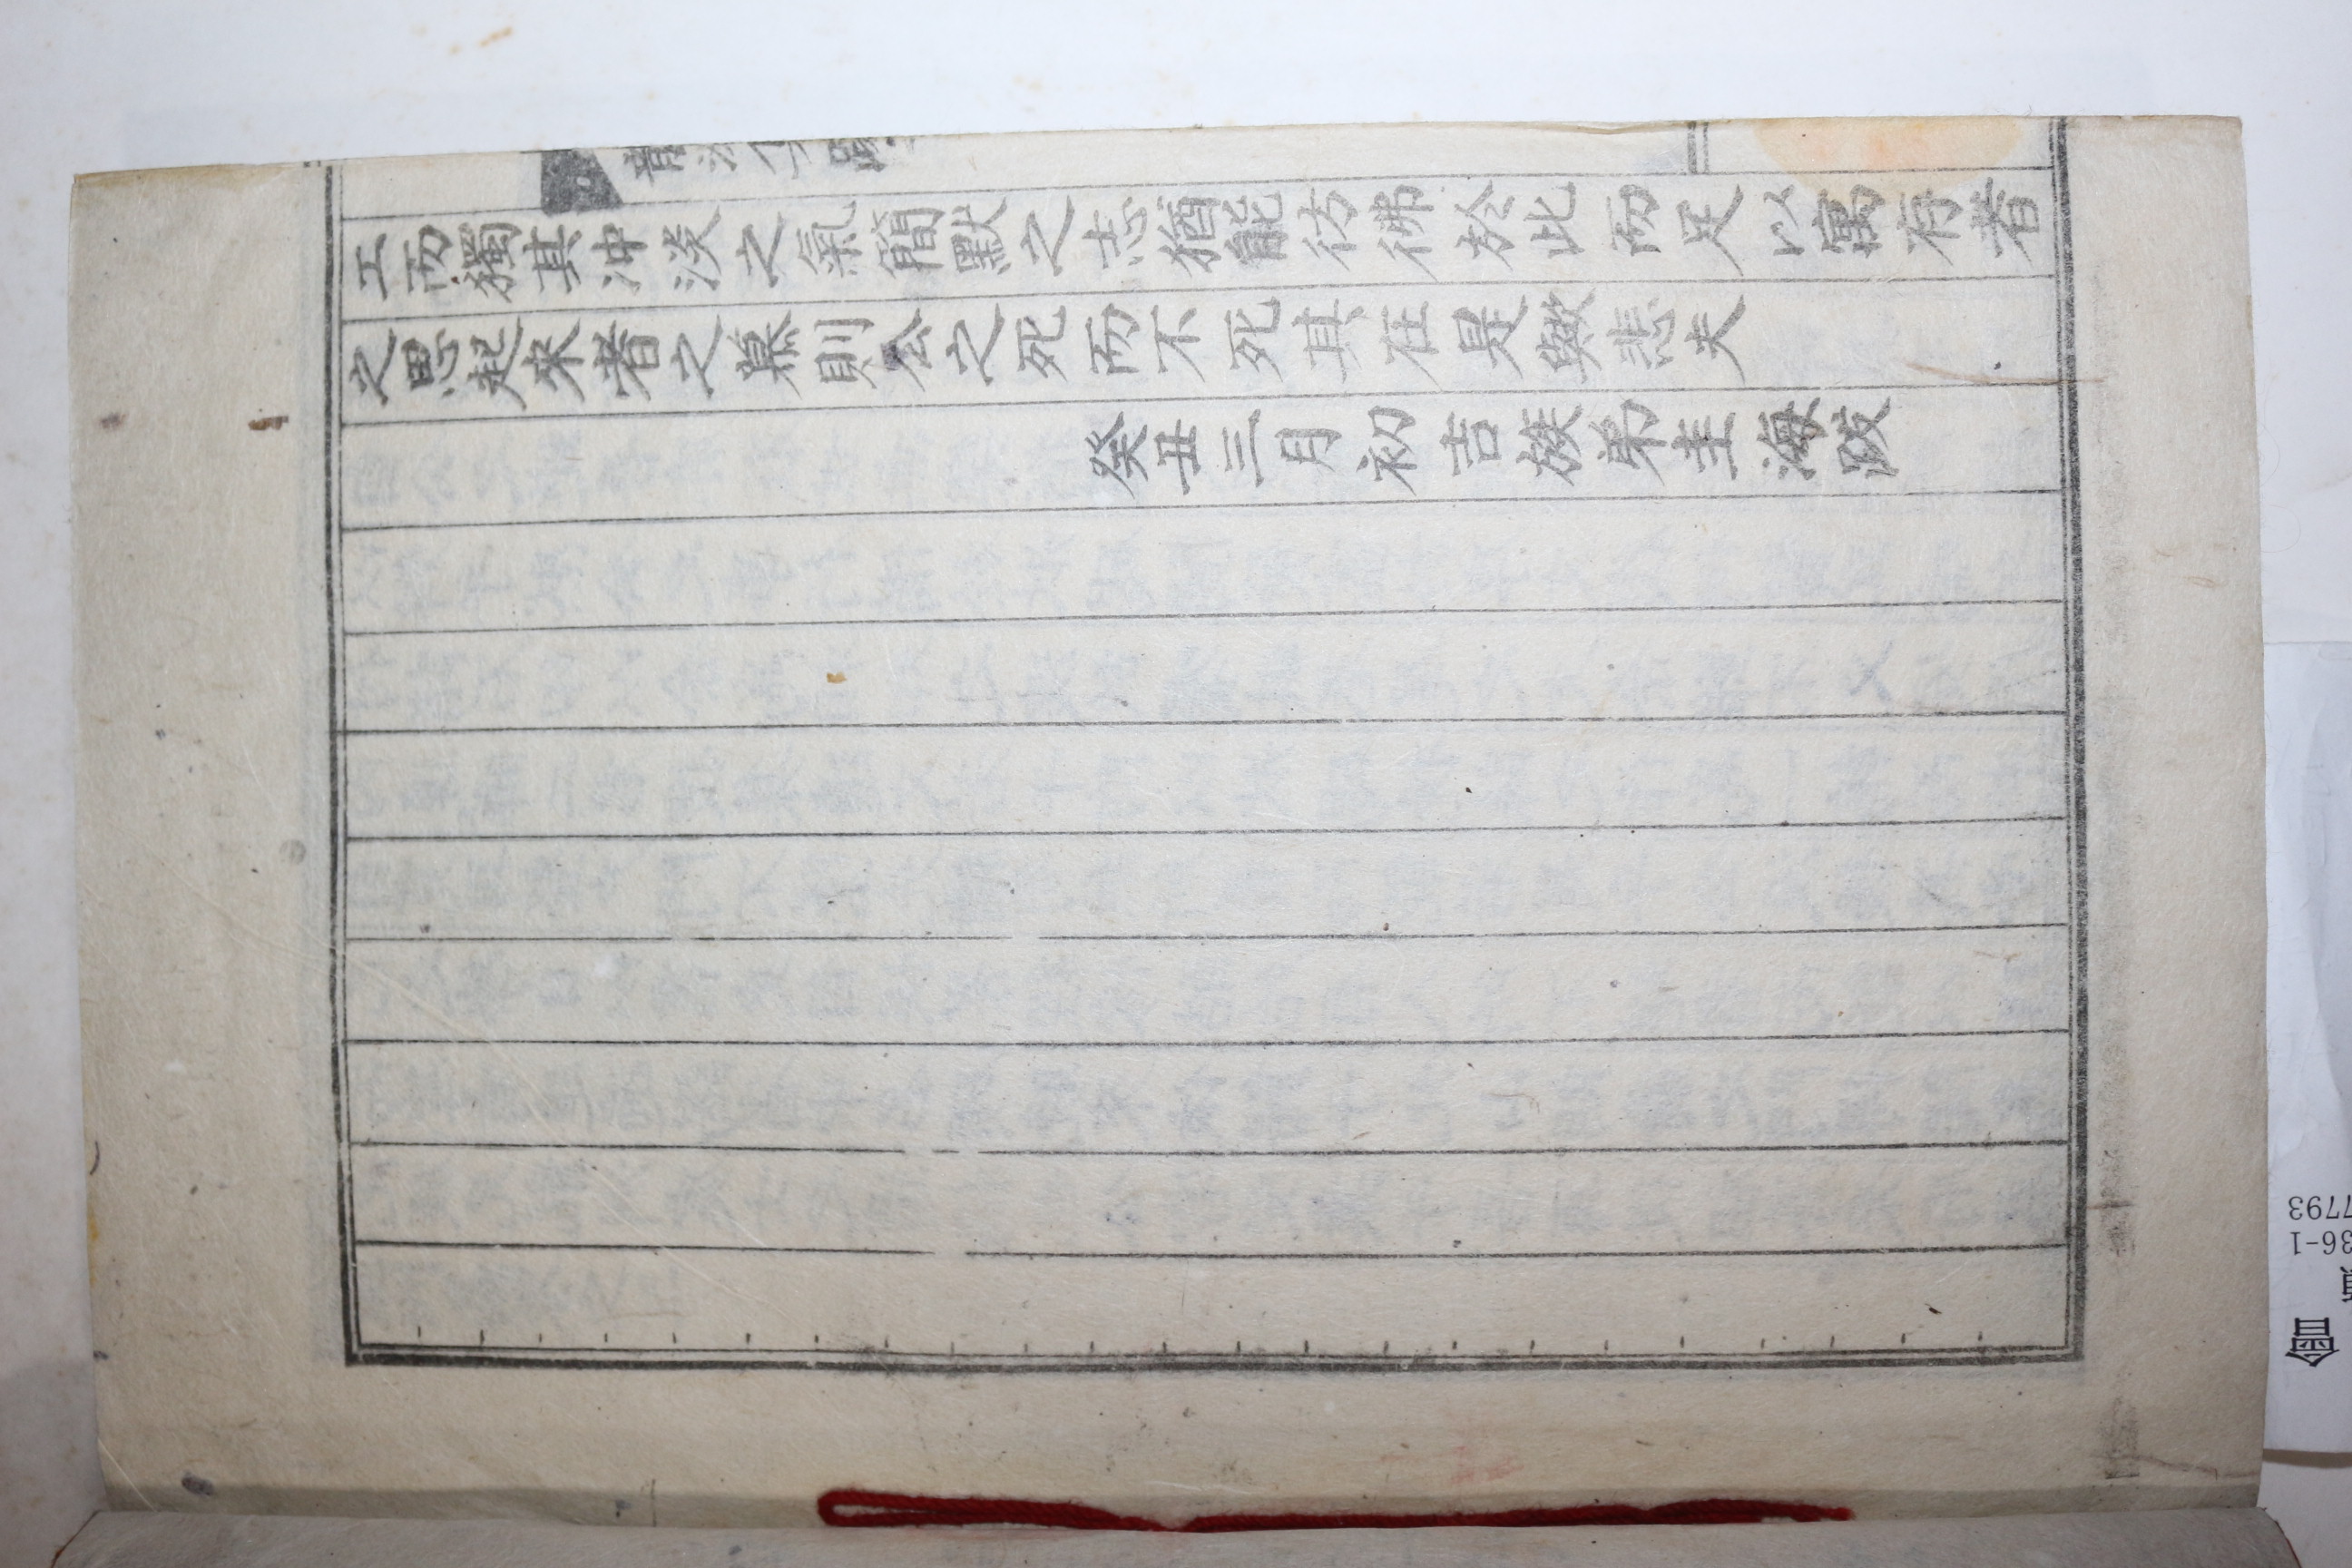 工而獨其冲淡之氣簡默之志猶能彷彿於此而足以寓存者
之思起來者之慕則公之死而不死其在是歟悲夫
癸丑三月初吉族弟圭海跋
會
36-1
7793